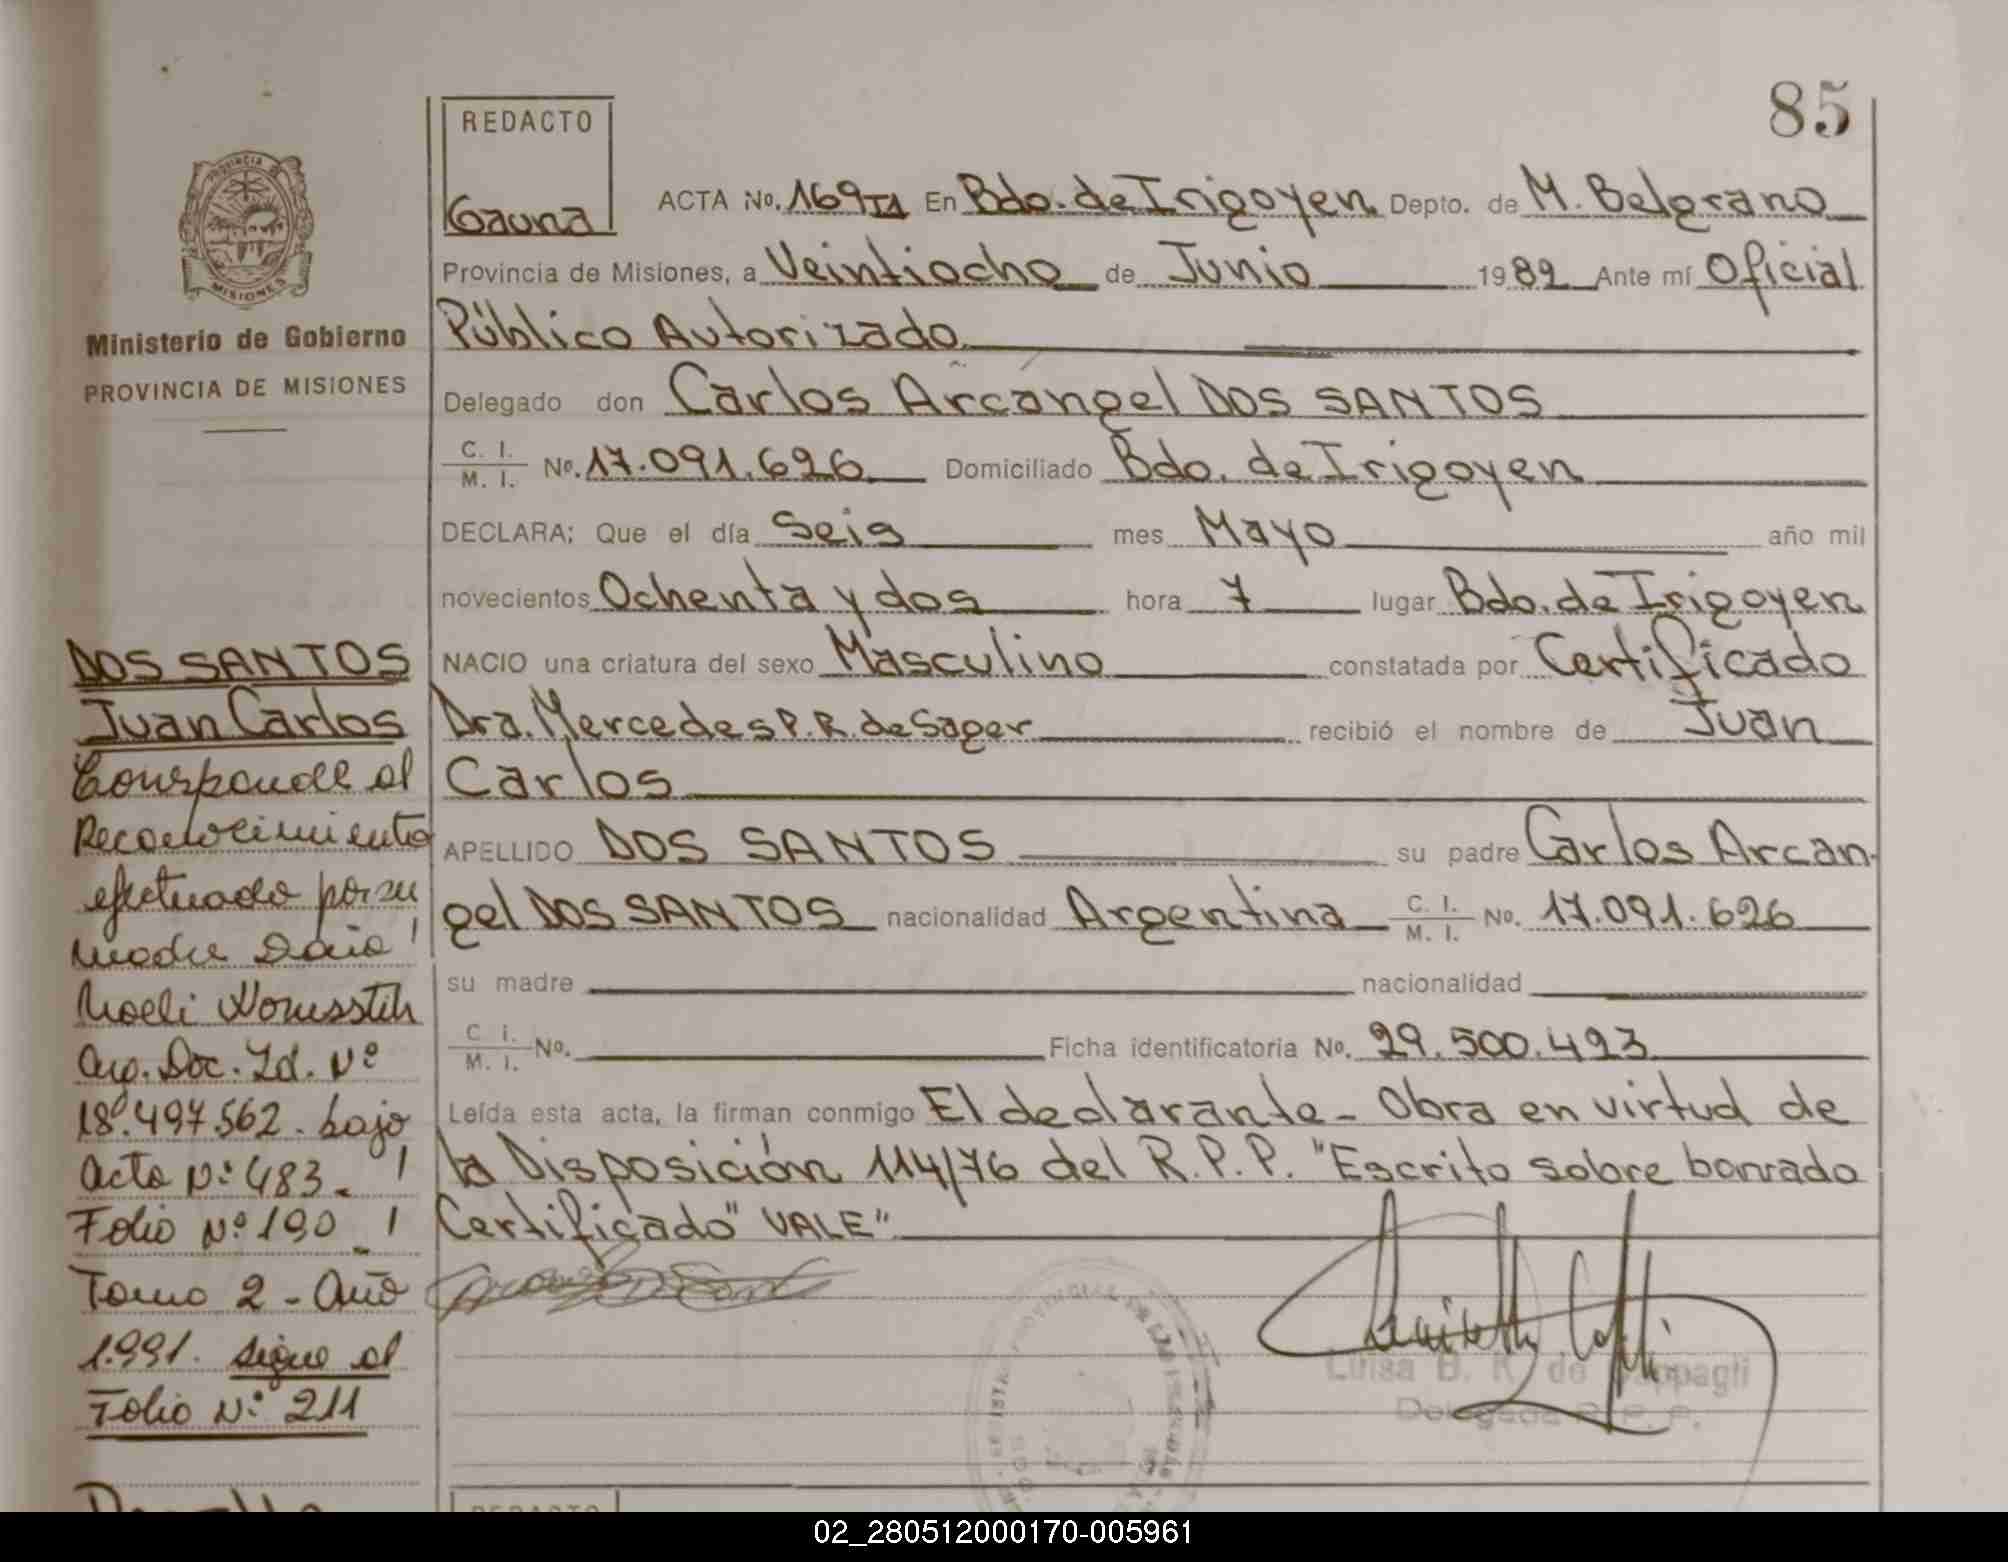 85
REDACTO
Gauna
ACTA No. 169 TA En Bdo. de Irigoyen Depto. de M. Belgrano
Provincia de Misiones, a Veintiocho de Junio 1982 Ante mí Oficial
Público Autorizado
Delegado don Carlos Arcángel DOS SANTOS
C. I.
M. I. No. 17.091.626 Domiciliado Bdo. de Irigoyen
DECLARA: Que el día Seis mes Mayo año mil
novecientos Ochenta y dos hora 7 lugar Bdo. de Irigoyen
NACIO una criatura del sexo Masculino constatada por Certificado
Dra. Mercedes P. R. de Sager recibió el nombre de Juan
Carlos
APELLIDO DOS SANTOS su padre Carlos Arcan-
gel DOS SANTOS nacionalidad Argentina C. I. M. I. No. 17.091.626
su madre nacionalidad
C. I.
M. I. No. Ficha identificatoria No. 29.500.423
Leída esta acta, la firman conmigo El declarante - Obra en virtud de
la Disposición 114/76 del R.P.P. "Escrito sobre borrado
Certificado" VALE"
Luisa B. R. de Cappagli
Delegada R. P. P.
PROVINCIA
MISIONES
Ministerio de Gobierno
PROVINCIA DE MISIONES
DOS SANTOS
Juan Carlos
Corresponde al
Reconocimiento
efectuado por su
madre Doña
Noeli
Arg. Doc. Id. Nº
18.497.562. bajo
acta Nº 483.
Folio Nº 190
Tomo 2 - Año
1.991. sigue al
Folio Nº 211
REDACTO
02_280512000170-005961